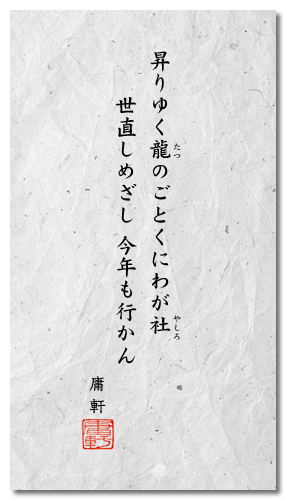 昇りゆく龍のごとくにわが社
たつ
やしろ
世直しめざし 今年も行かん
庸軒